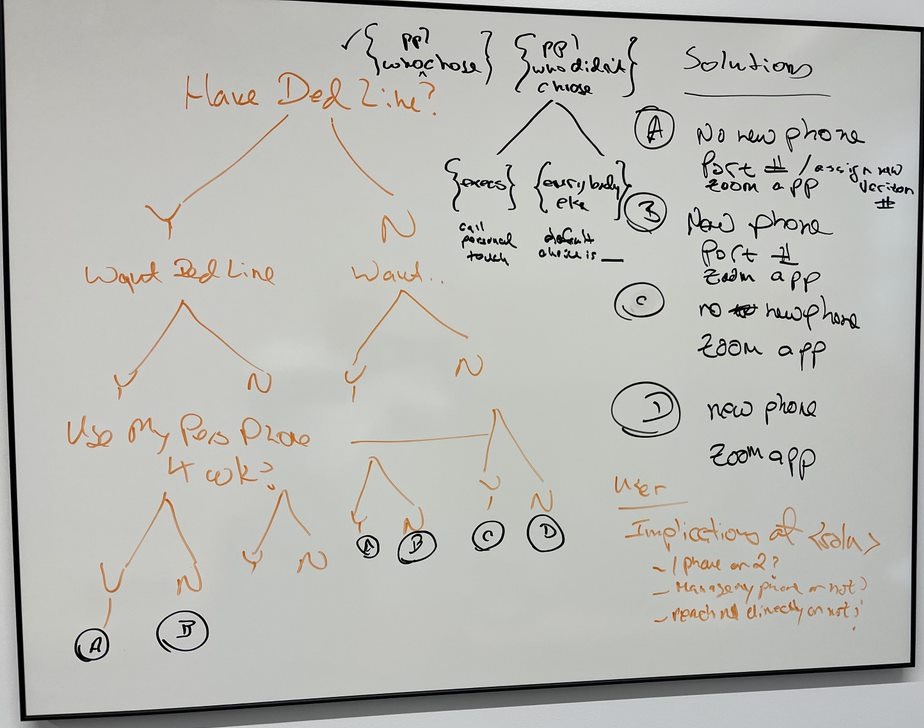 Have Ded Line?
Y
N
Want Ded Line
Want..
Y
N
Y
N
Use My Pers Phone
4 wk?
Y
N
Y
N
Y
N
Y
N
A
B
A
B
C
D
✓{ppl who chose}
{ppl who didn't chose}
{execs}
{everybody else}
call
personal
touch
default
choice is __
Solutions
A
No new phone
Port # / assign new
Zoom app Verizon
#
B
New phone
Port #
Zoom app
C
no new phone
Zoom app
D
new phone
Zoom app
User
Implications of <soln>
- 1 phone or 2?
- Manage my phone or not?
- reach directly or not?